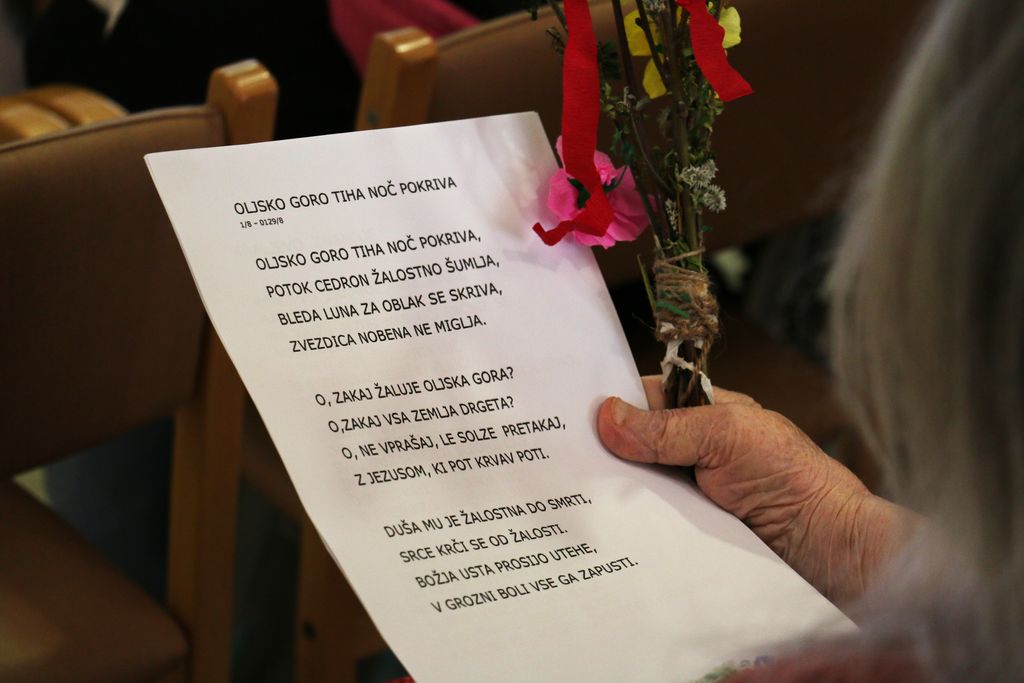 OLJSKO GORO TIHA NOČ POKRIVA
1/8 – 0129/8
OLJSKO GORO TIHA NOČ POKRIVA,
POTOK CEDRON ŽALOSTNO ŠUMLJA,
BLEDA LUNA ZA OBLAK SE SKRIVA,
ZVEZDICA NOBENA NE MIGLJA.
O, ZAKAJ ŽALUJE OLJSKA GORA?
O,ZAKAJ VSA ZEMLJA DRGETA?
O, NE VPRAŠAJ, LE SOLZE PRETAKAJ,
Z JEZUSOM, KI POT KRVAV POTI.
DUŠA MU JE ŽALOSTNA DO SMRTI,
SRCE KRČI SE OD ŽALOSTI.
BOŽJA USTA PROSIJO UTEHE,
V GROZNI BOLI VSE GA ZAPUSTI.